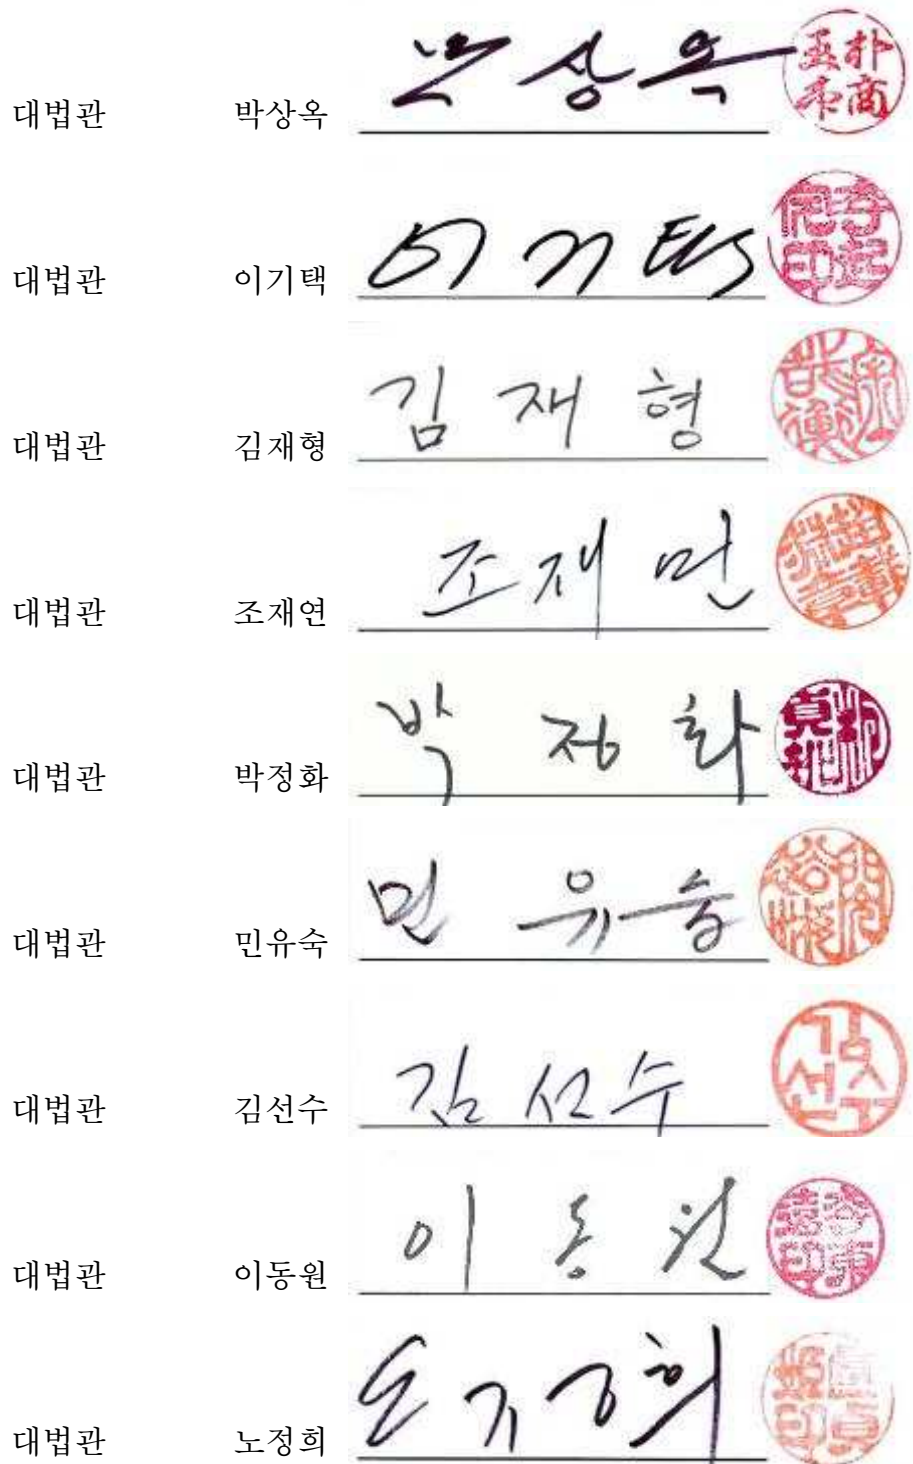 대법관 박상옥 박상옥 朴商玉印
대법관 이기택 이기택
대법관 김재형 김재형
대법관 조재연 조재연
대법관 박정화 박정화
대법관 민유숙 민유숙
대법관 김선수 김선수 김선수
대법관 이동원 이동원
대법관 노정희 노정희